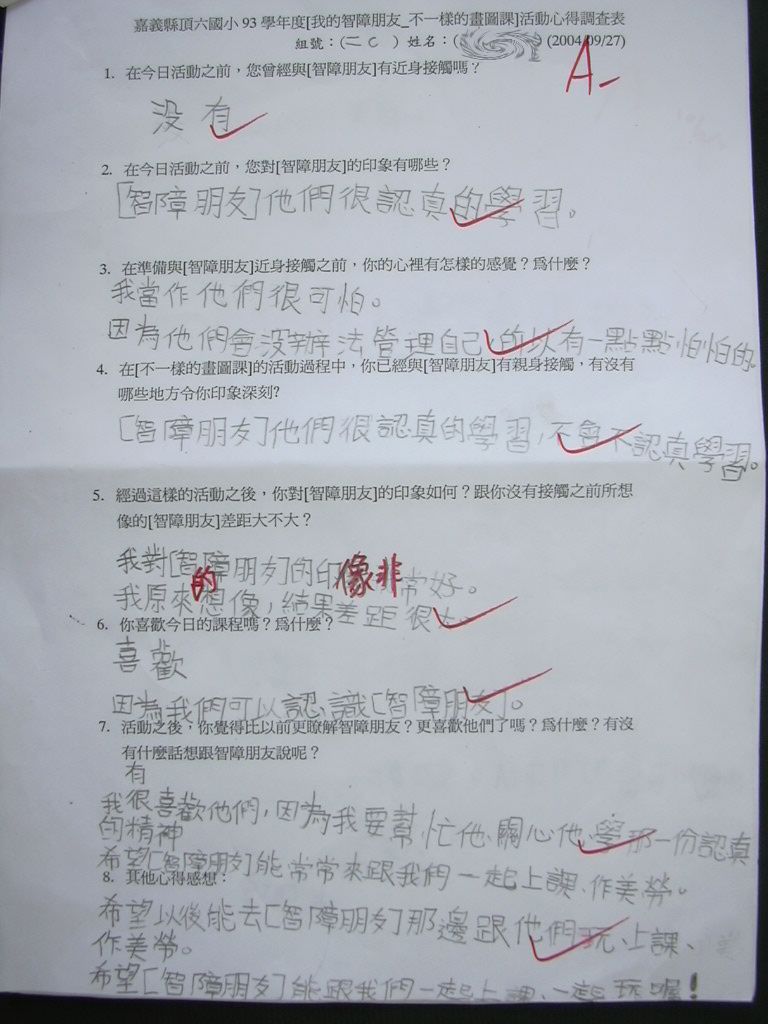 嘉義縣頂六國小93學年度[我的智障朋友_不一樣的畫圖課]活動心得調查表
組號：(二C) 姓名：( (2004/09/27)
A-
1. 在今日活動之前，您曾經與[智障朋友]有近身接觸嗎？
没有
2. 在今日活動之前，您對[智障朋友]的印象有哪些？
[智障朋友]他們很認真的學習。
3. 在準備與[智障朋友]近身接觸之前，你的心裡有怎樣的感覺？爲什麼？
我當作他們很可怕。
因為他們會没辦法管理自己，的以有一點點怕怕的。
4. 在[不一樣的畫圖課]的活動過程中，你已經與[智障朋友]有親身接觸，有沒有
哪些地方令你印象深刻?
[智障朋友]他們很認真的學習，不會不認真學習。
5. 經過這樣的活動之後，你對[智障朋友]的印象如何？跟你沒有接觸之前所想
像的[智障朋友]差距大不大？
我對[智障朋友]的印像非常好。
我原來的想像，結果差距很大。
6. 你喜歡今日的課程嗎？爲什麼？
喜歡
因為我們可以認識[智障朋友]。
7. 活動之後，你覺得比以前更瞭解智障朋友？更喜歡他們了嗎？爲什麼？有沒
有什麼話想跟智障朋友說呢？
有
我很喜歡他們，因為我要幫忙他、關心他、學那一份認真
的精神
希望[智障朋友]能常常來跟我們一起上課、作美勞。
8. 其他心得感想：
希望以後能去[智障朋友]那邊跟他們玩、上課、
作美勞。
希望[智障朋友]能跟我們一起上課、一起玩喔！